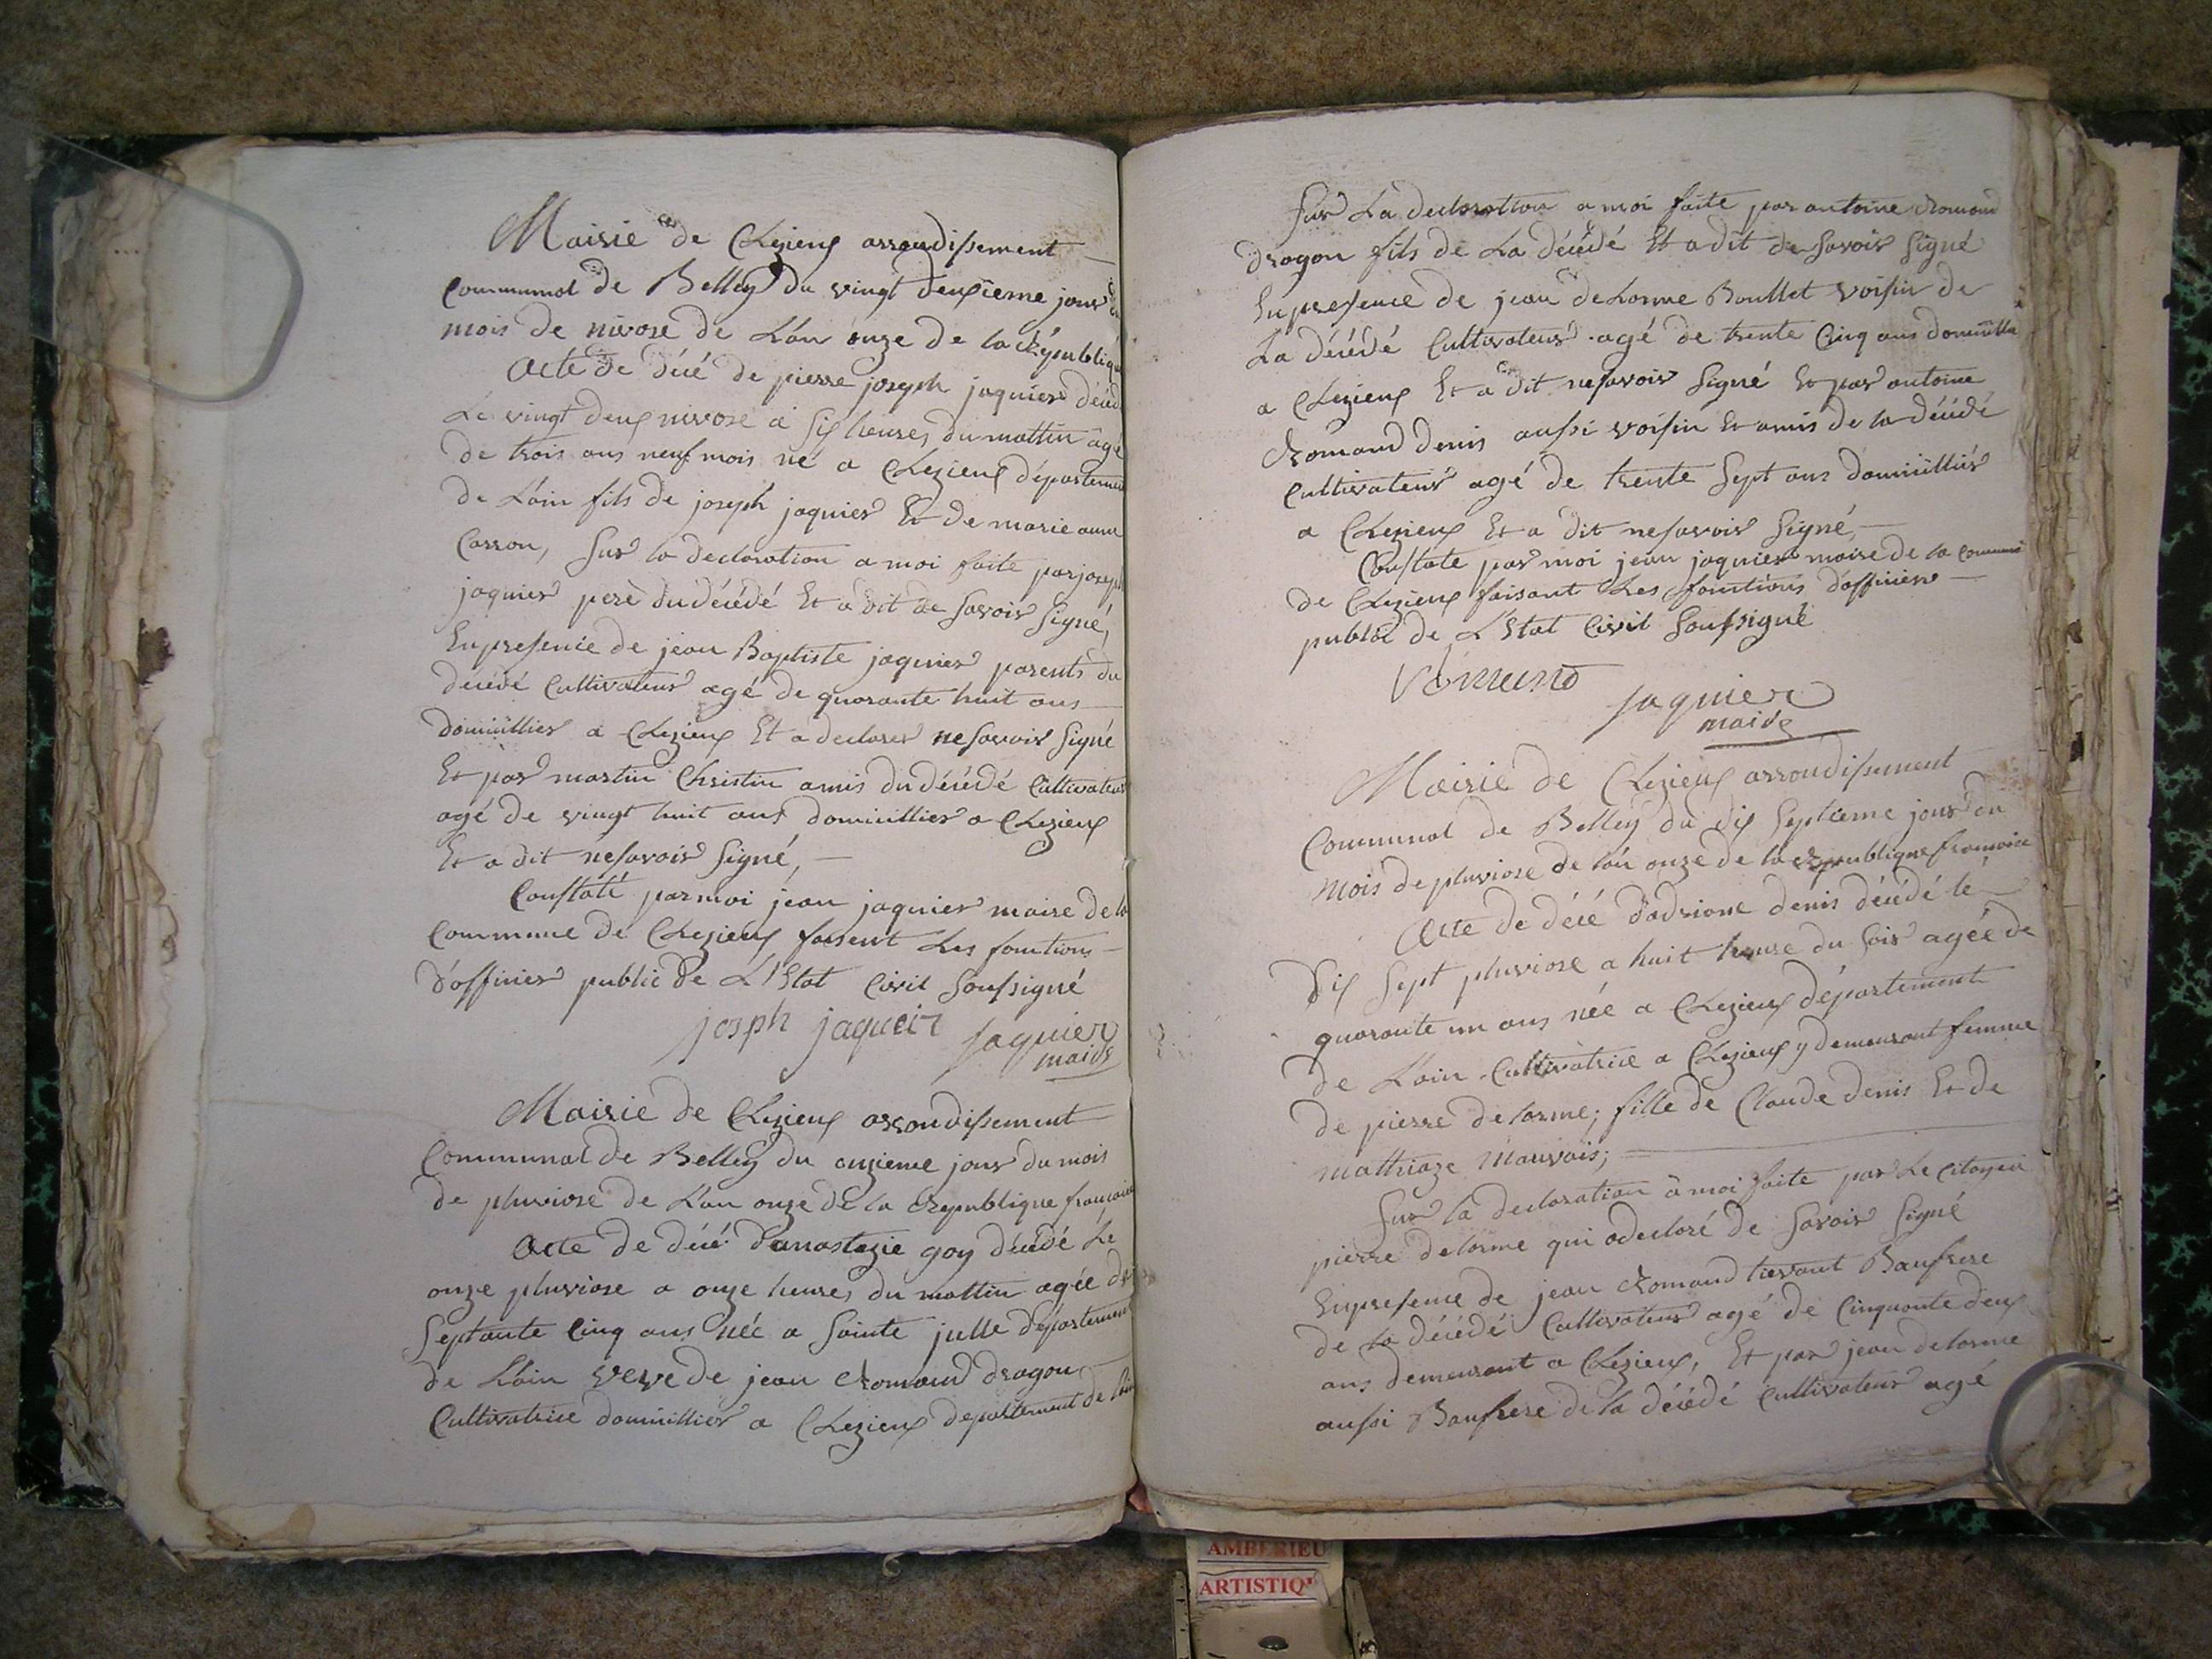 Mairie de Chezieux arrondissement
Communal de Belley du vingt deuxieme jour du
mois de nivose de L'an onze de la République
Acte de décé de pierre joseph jaquier décédé
Le vingt deux nivose à six heures du mattin âgé
de trois ans neuf mois né a Chezieux département
de L'ain fils de joseph jaquier Et de marie anne
Carron, sur la declaration a moi faite par joseph
jaquier pere du décédé Et a dit de savoir signé,
En presence de jean Baptiste jaquier parents du
décédé Cultivateur agé de quarante huit ans
domicillier a Chezieux Et a declarer ne savoir signé
Et par martin Christin amis du décédé Cultivateur
agé de vingt huit ans domicillier a Chezieux
Et a dit ne savoir signé,
Constaté par moi jean jaquier maire de la
Commune de Chezieux faisent Les fonctions
d'officier public de L'Etat Civil soussigné
josph jaqueir jaquier
maire
Mairie de Chezieux arrondissement
Communal de Belley du onzieme jour du mois
de pluviose de L'an onze de la Republique francaise
Acte de décé d'anastazie goy décédé Le
onze pluviose a onze heures du mattin agée de
Septante Cinq ans née a Sainte julle département
de L'ain veve de jean Romand dragon
Cultivatrice domicillier a Chezieux departement de L'ain
Sur La declaration a moi faite par antoine Romand
dragon fils de La décédé Et a dit de savoir signé
En presence de jean delorme Boullet voisin de
La décédé Cultivateur agé de trente Cinq ans domicillié
a Chezieux Et a dit ne savoir signé Et par antoine
Romand denis aussi voisin Et amis de la décédé
Cultivateur agé de trente sept ans domicillier
a Chezieux Et a dit ne savoir signé,
Constate par moi jean jaquier maire de la Commune
de Chezieux faisant Les fonctions d'officier
public de L'Etat Civil soussigné
jaquier
maire
Mairie de Chezieux arrondissement
Communal de Belley du dix septieme jour du
mois de pluviose de l'an onze de la Republique francaise
Acte de décé d'adriane denis décédé le
dix sept pluviose a huit heure du soir agée de
quarante un ans née a Chezieux département
de L'ain Cultivatrice a Chezieux y demeurant femme
de pierre delorme; fille de Claude denis Et de
mathiaze Mauvais;
Sur la declaration à moi faite par Le Citoyen
pierre delorme qui a declaré de savoir signé
En presence de jean Romand tievant Baufrere
de la décédé Cultivateur agé de Cinquante deux
ans demeurant a Chezieux, Et par jean delorme
aussi Baufrere de la décédé Cultivateur agé
AMBERIEU
ARTISTIQ